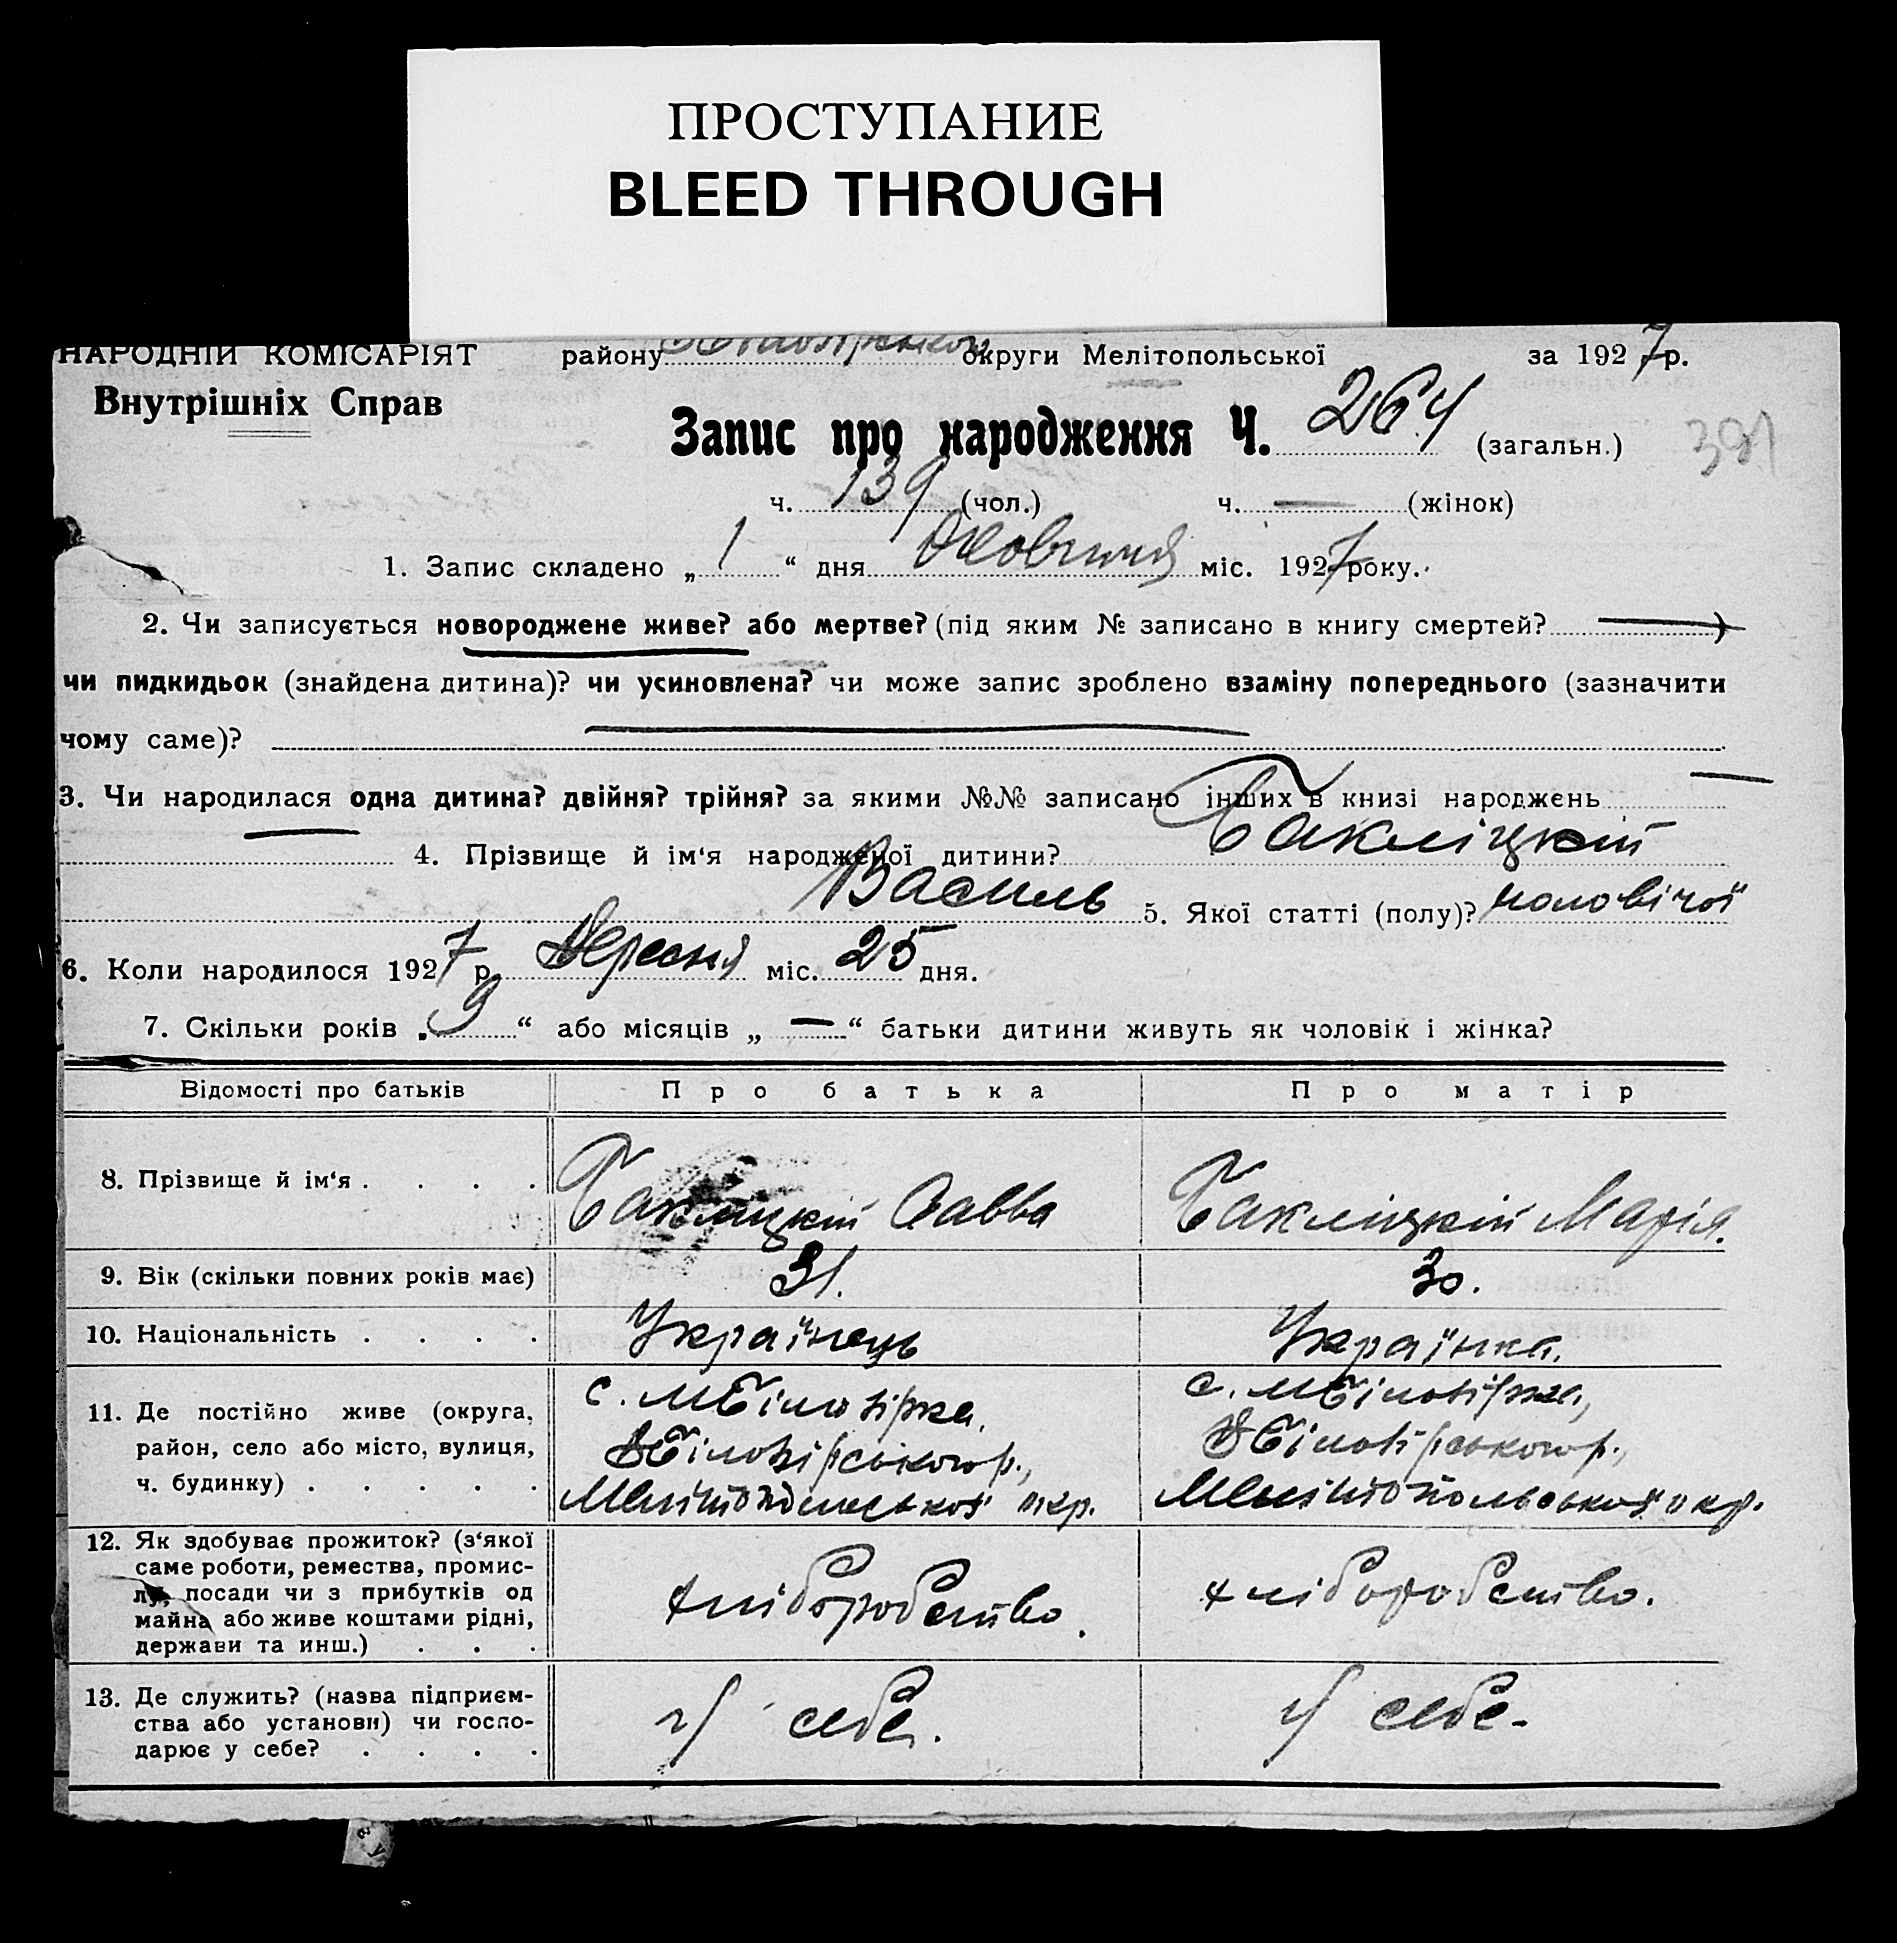 ПРОСТУПАНИЕ
BLEED THROUGH
НАРОДНІЙ КОМІСАРІЯТ району округи Мелітопольської за 1927 р.
Внутрішніх Справ
Запис про народження Ч. 264 (загальн.) 391
ч. 139 (чол.) ч. — (жінок)
1. Запис складено „ 1 “ дня Жовтня міс. 1927 року.
2. Чи записується новороджене живе? або мертве? (під яким № записано в книгу смертей? — )
чи пидкидьок (знайдена дитина)? чи усиновлена? чи може запис зроблено взаміну попереднього (зазначити
чому саме)?
3. Чи народилася одна дитина? двійня? трійня? за якими №№ записано інших в книзі народжень —
4. Прізвище й ім‘я народженої дитини? Бакліцкій
Василь 5. Якої статті (полу)? чоловічої
6. Коли народилося 1927 р. Вересня міс. 25 дня.
7. Скільки років „ 9 “ або місяців „ — “ батьки дитини живуть як чоловік і жінка?
Відомості про батьків Про батька Про матір
8. Прізвище й ім‘я . . . . Бакліцкій Савва Бакліцкій Марія.
9. Вік (скільки повних років має) 31. 30.
10. Національність . . . . Українець Українка.
11. Де постійно живе (округа,
район, село або місто, вулиця,
ч. будинку) . . . . .
с. МБілозірка,
ВБілозірського р.,
Мелітопольської окр.
с. МБілозірка,
ВБілозірського р.,
Мелітопольської окр.
12. Як здобуває прожиток? (з‘якої
саме роботи, ремества, промис-
лу, посади чи з прибутків од
майна або живе коштами рідні,
держави та инш.) . . .
хліборобство.
хліборобство.
13. Де служить? (назва підприєм-
ства або установи) чи госпо-
дарює у себе? . . . .
у себе.
у себе.